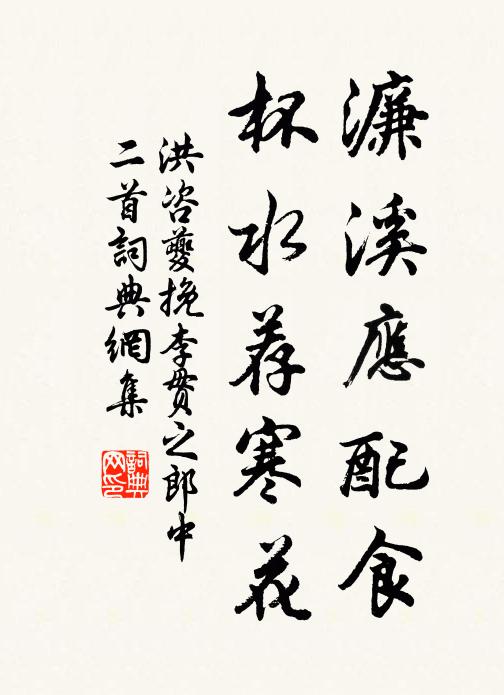 濂溪應配食
杯水荐寒花
洪咨夔挽李貫之郎中
二首詞典網集
詞典網印